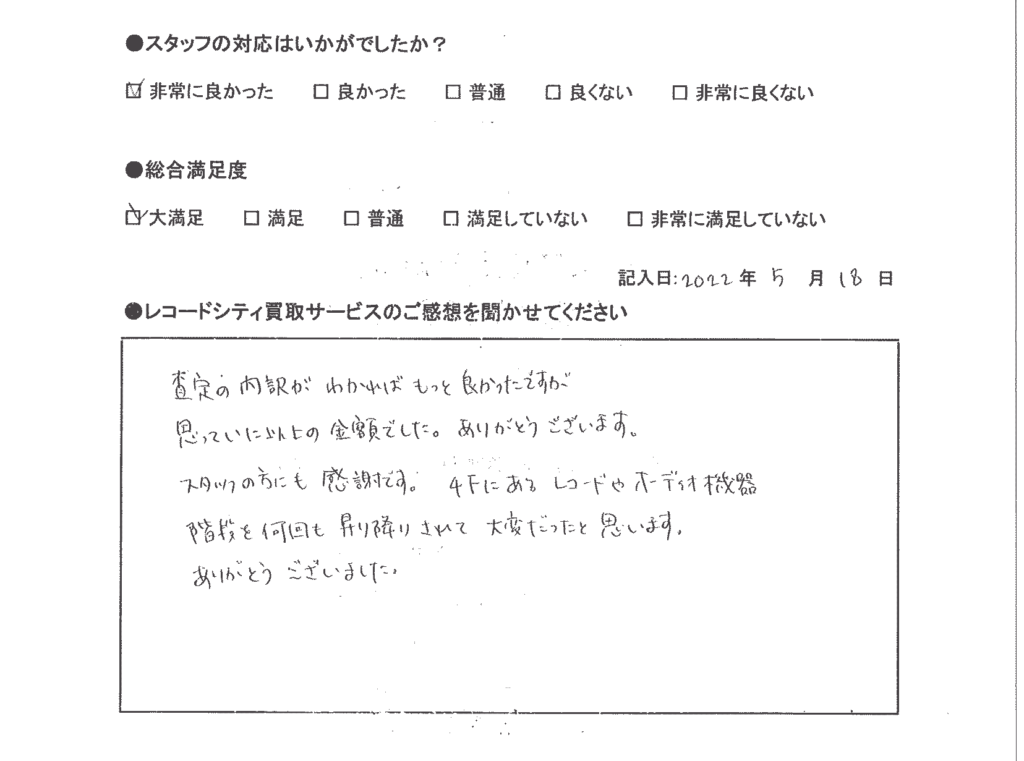 ●スタッフの対応はいかがでしたか？
☑ 非常に良かった □ 良かった □ 普通 □ 良くない □ 非常に良くない
●総合満足度
☑ 大満足 □ 満足 □ 普通 □ 満足していない □ 非常に満足していない
記入日:2022年 5 月 18 日
●レコードシティ買取サービスのご感想を聞かせてください
査定の内訳が わかれば もっと 良かったですが
思っていた以上の 金額でした。ありがとうございます。
スタッフの方にも 感謝です。 4Fにある レコードや オーディオ機器
階段を 何回も 昇り降りされて 大変だったと 思います。
ありがとう ございました。